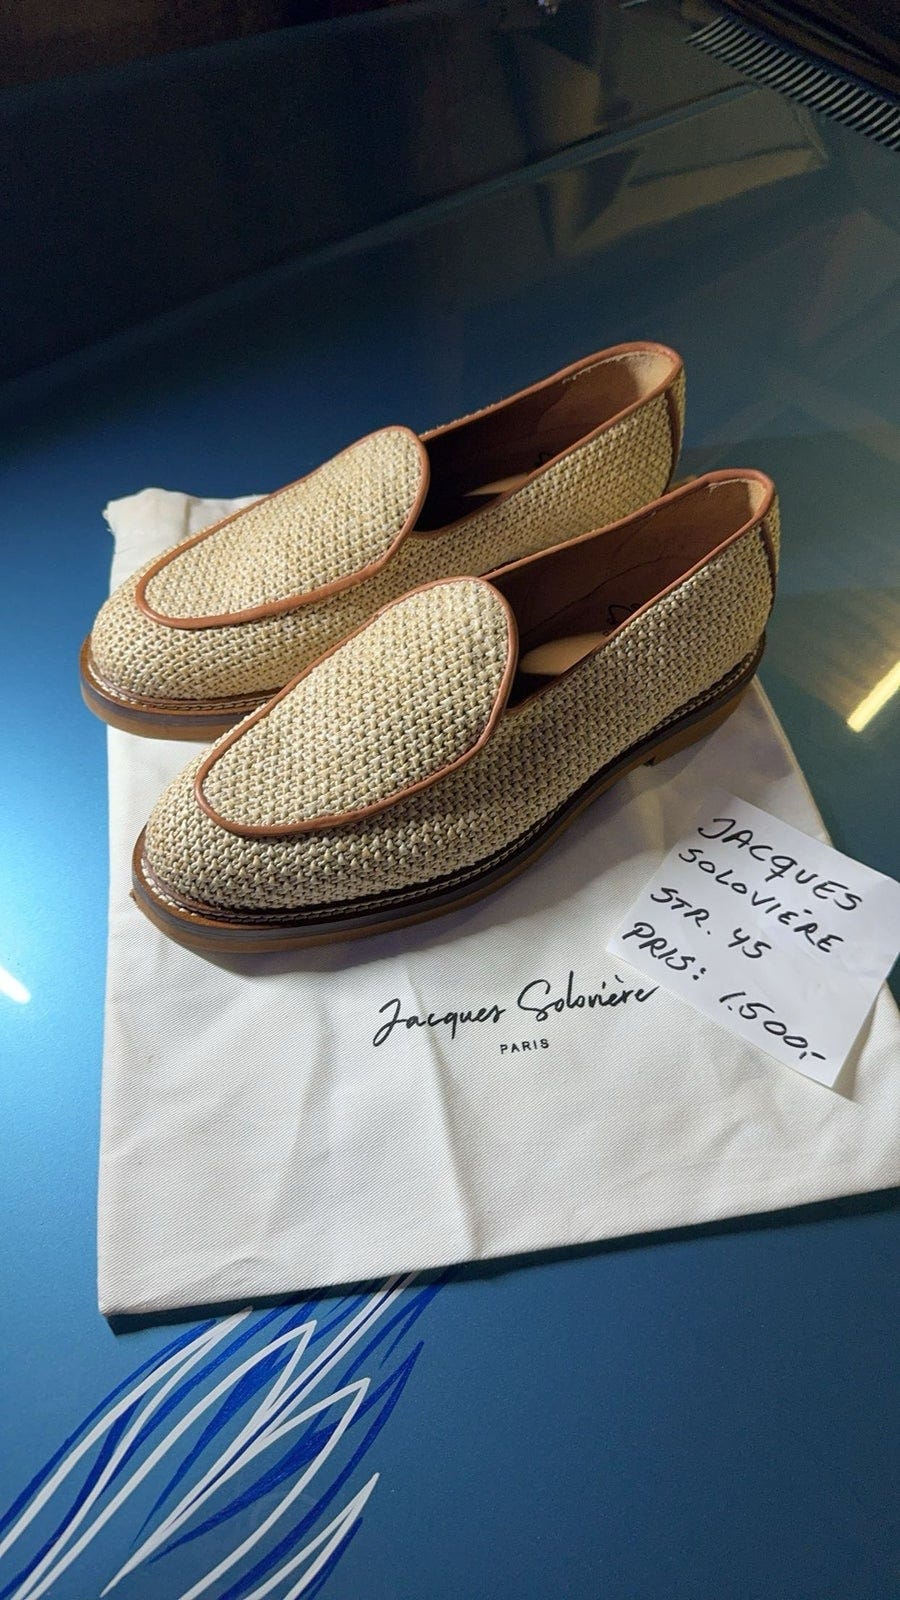 JACQUES
SOLOVIÉRE
STR. 45
PRIS: 1.500,-
Jacques Solovière
PARIS